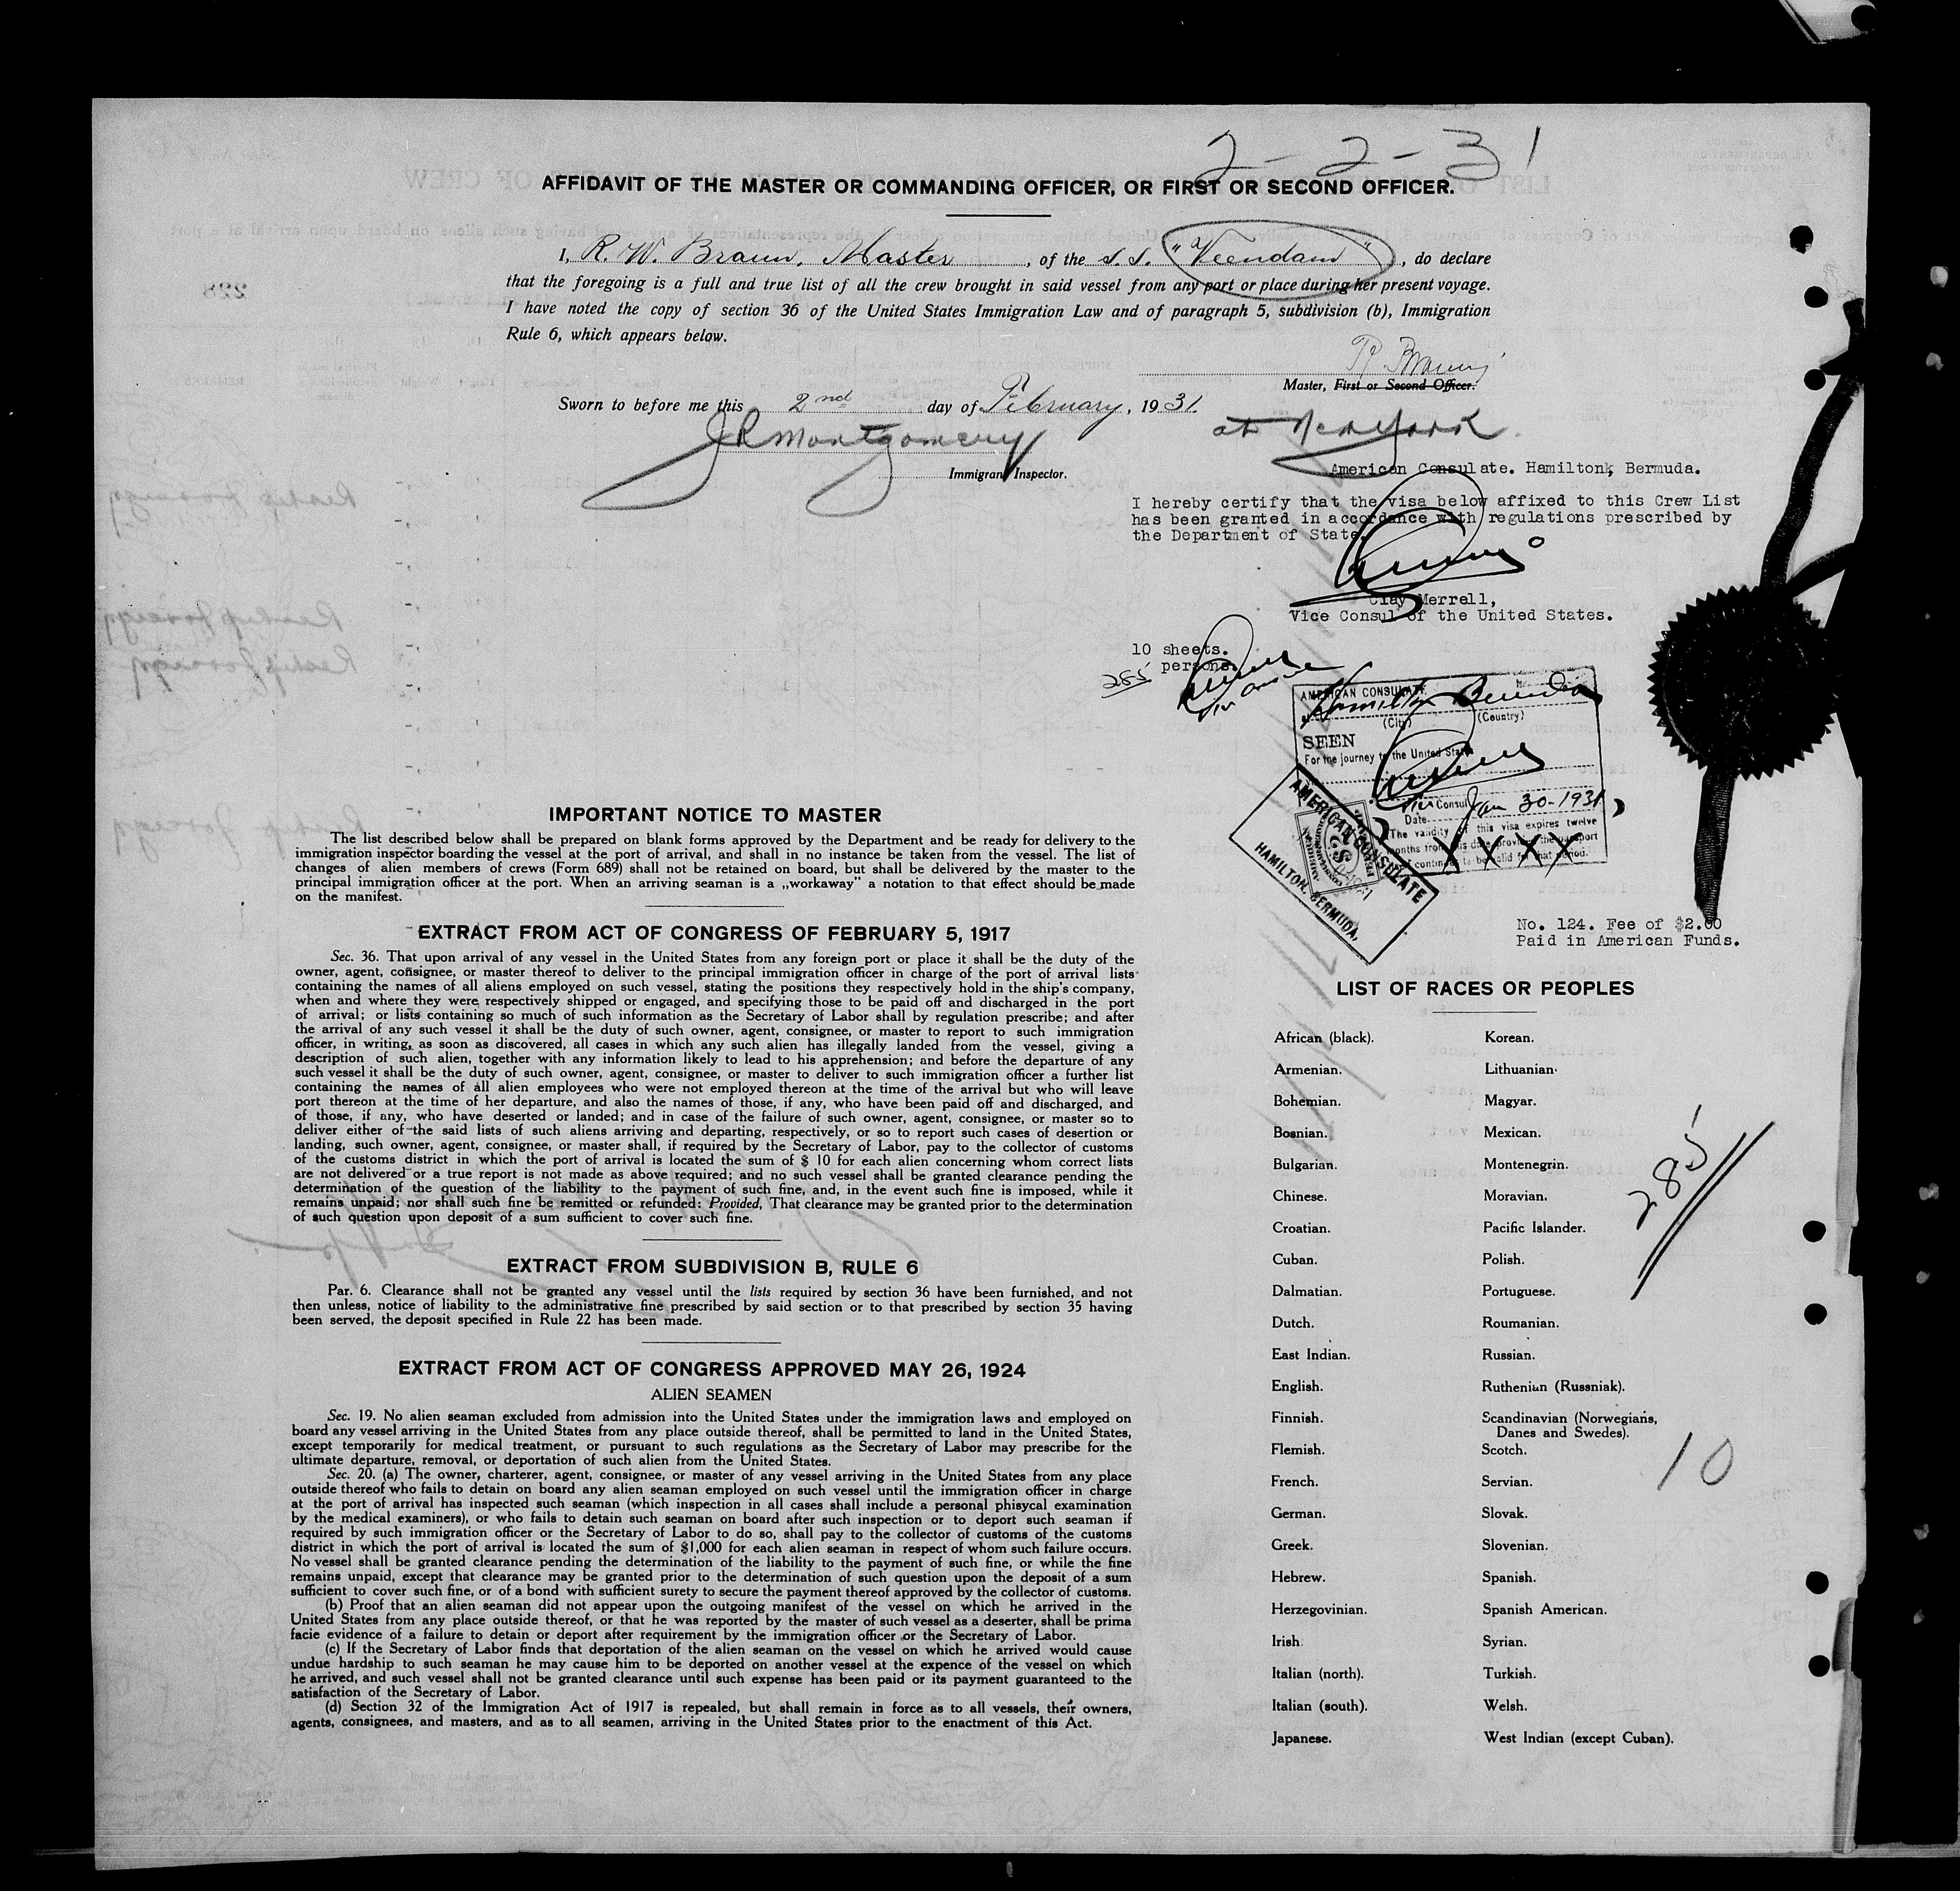 2 - 2 - 31
AFFIDAVIT OF THE MASTER OR COMMANDING OFFICER, OR FIRST OR SECOND OFFICER.
I, R. W. Braun, Master, of the s.s. "Veendam", do declare
that the foregoing is a full and true list of all the crew brought in said vessel from any port or place during her present voyage.
I have noted the copy of section 36 of the United States Immigration Law and of paragraph 5, subdivision (b), Immigration
Rule 6, which appears below.
R. Braun
Master, First or Second Officer.
Sworn to before me this 2nd day of February, 1931.
at New York.
J R Montgomery
Immigrant Inspector.
American Consulate. Hamilton, Bermuda.
I hereby certify that the visa below affixed to this Crew List
has been granted in accordance with regulations prescribed by
the Department of State.
Clay Merrell,
Vice Consul of the United States.
10 sheets.
285 persons.
AMERICAN CONSULATE
Hamilton Bermuda
(City) (Country)
SEEN
For the journey to the United States
Vice Consul
Date Jan 30-1931
The validity of this visa expires twelve
months from this date provided the passport
continues to be valid for that period.
XXXX
AMERICAN CONSULATE
HAMILTON, BERMUDA,
No. 124. Fee of $2.00
Paid in American Funds.
IMPORTANT NOTICE TO MASTER
The list described below shall be prepared on blank forms approved by the Department and be ready for delivery to the
immigration inspector boarding the vessel at the port of arrival, and shall in no instance be taken from the vessel. The list of
changes of alien members of crews (Form 689) shall not be retained on board, but shall be delivered by the master to the
principal immigration officer at the port. When an arriving seaman is a „workaway" a notation to that effect should be made
on the manifest.
EXTRACT FROM ACT OF CONGRESS OF FEBRUARY 5, 1917
Sec. 36. That upon arrival of any vessel in the United States from any foreign port or place it shall be the duty of the
owner, agent, consignee, or master thereof to deliver to the principal immigration officer in charge of the port of arrival lists
containing the names of all aliens employed on such vessel, stating the positions they respectively hold in the ship's company,
when and where they were respectively shipped or engaged, and specifying those to be paid off and discharged in the port
of arrival; or lists containing so much of such information as the Secretary of Labor shall by regulation prescribe; and after
the arrival of any such vessel it shall be the duty of such owner, agent, consignee, or master to report to such immigration
officer, in writing, as soon as discovered, all cases in which any such alien has illegally landed from the vessel, giving a
description of such alien, together with any information likely to lead to his apprehension; and before the departure of any
such vessel it shall be the duty of such owner, agent, consignee, or master to deliver to such immigration officer a further list
containing the names of all alien employees who were not employed thereon at the time of the arrival but who will leave
port thereon at the time of her departure, and also the names of those, if any, who have been paid off and discharged, and
of those, if any, who have deserted or landed; and in case of the failure of such owner, agent, consignee, or master so to
deliver either of the said lists of such aliens arriving and departing, respectively, or so to report such cases of desertion or
landing, such owner, agent, consignee, or master shall, if required by the Secretary of Labor, pay to the collector of customs
of the customs district in which the port of arrival is located the sum of $ 10 for each alien concerning whom correct lists
are not delivered or a true report is not made as above required; and no such vessel shall be granted clearance pending the
determination of the question of the liability to the payment of such fine, and, in the event such fine is imposed, while it
remains unpaid; nor shall such fine be remitted or refunded: Provided, That clearance may be granted prior to the determination
of such question upon deposit of a sum sufficient to cover such fine.
EXTRACT FROM SUBDIVISION B, RULE 6
Par. 6. Clearance shall not be granted any vessel until the lists required by section 36 have been furnished, and not
then unless, notice of liability to the administrative fine prescribed by said section or to that prescribed by section 35 having
been served, the deposit specified in Rule 22 has been made.
EXTRACT FROM ACT OF CONGRESS APPROVED MAY 26, 1924
ALIEN SEAMEN
Sec. 19. No alien seaman excluded from admission into the United States under the immigration laws and employed on
board any vessel arriving in the United States from any place outside thereof, shall be permitted to land in the United States,
except temporarily for medical treatment, or pursuant to such regulations as the Secretary of Labor may prescribe for the
ultimate departure, removal, or deportation of such alien from the United States.
Sec. 20. (a) The owner, charterer, agent, consignee, or master of any vessel arriving in the United States from any place
outside thereof who fails to detain on board any alien seaman employed on such vessel until the immigration officer in charge
at the port of arrival has inspected such seaman (which inspection in all cases shall include a personal phisycal examination
by the medical examiners), or who fails to detain such seaman on board after such inspection or to deport such seaman if
required by such immigration officer or the Secretary of Labor to do so, shall pay to the collector of customs of the customs
district in which the port of arrival is located the sum of $1,000 for each alien seaman in respect of whom such failure occurs.
No vessel shall be granted clearance pending the determination of the liability to the payment of such fine, or while the fine
remains unpaid, except that clearance may be granted prior to the determination of such question upon the deposit of a sum
sufficient to cover such fine, or of a bond with sufficient surety to secure the payment thereof approved by the collector of customs.
(b) Proof that an alien seaman did not appear upon the outgoing manifest of the vessel on which he arrived in the
United States from any place outside thereof, or that he was reported by the master of such vessel as a deserter, shall be prima
facie evidence of a failure to detain or deport after requirement by the immigration officer or the Secretary of Labor.
(c) If the Secretary of Labor finds that deportation of the alien seaman on the vessel on which he arrived would cause
undue hardship to such seaman he may cause him to be deported on another vessel at the expence of the vessel on which
he arrived, and such vessel shall not be granted clearance until such expense has been paid or its payment guaranteed to the
satisfaction of the Secretary of Labor.
(d) Section 32 of the Immigration Act of 1917 is repealed, but shall remain in force as to all vessels, their owners,
agents, consignees, and masters, and as to all seamen, arriving in the United States prior to the enactment of this Act.
LIST OF RACES OR PEOPLES
African (black).
Armenian.
Bohemian.
Bosnian.
Bulgarian.
Chinese.
Croatian.
Cuban.
Dalmatian.
Dutch.
East Indian.
English.
Finnish.
Flemish.
French.
German.
Greek.
Hebrew.
Herzegovinian.
Irish.
Italian (north).
Italian (south).
Japanese.
Korean.
Lithuanian.
Magyar.
Mexican.
Montenegrin.
Moravian.
Pacific Islander.
Polish.
Portuguese.
Roumanian.
Russian.
Ruthenian (Russniak).
Scandinavian (Norwegians,
Danes and Swedes).
Scotch.
Servian.
Slovak.
Slovenian.
Spanish.
Spanish American.
Syrian.
Turkish.
Welsh.
West Indian (except Cuban).
285
10